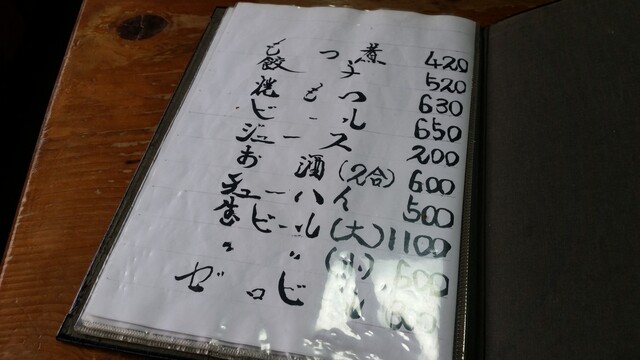 もつ煮 420
餃子 520
焼 630
ビール 650
ジュース 200
お酒(2合) 600
チューハイ 500
生ビール(大) 1100
〃 〃 (小)
ゼロビ